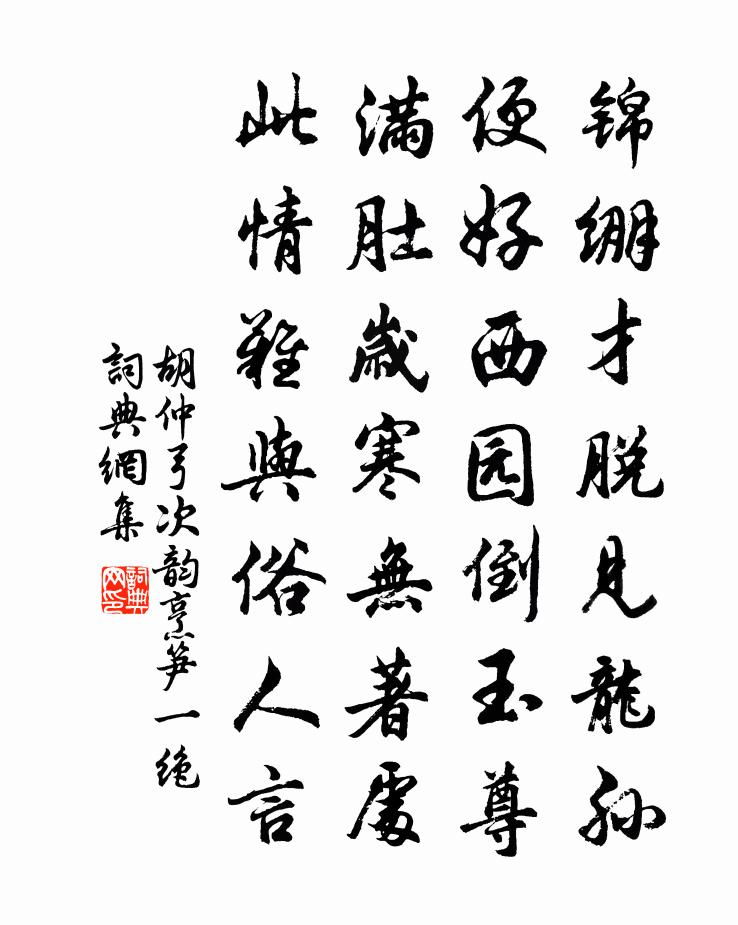 锦绷才脱见龍孙
便好西园倒玉尊
满肚歲寒無著處
此情難與俗人言
胡仲弓次韵烹笋一绝
詞典網集
詞典網印